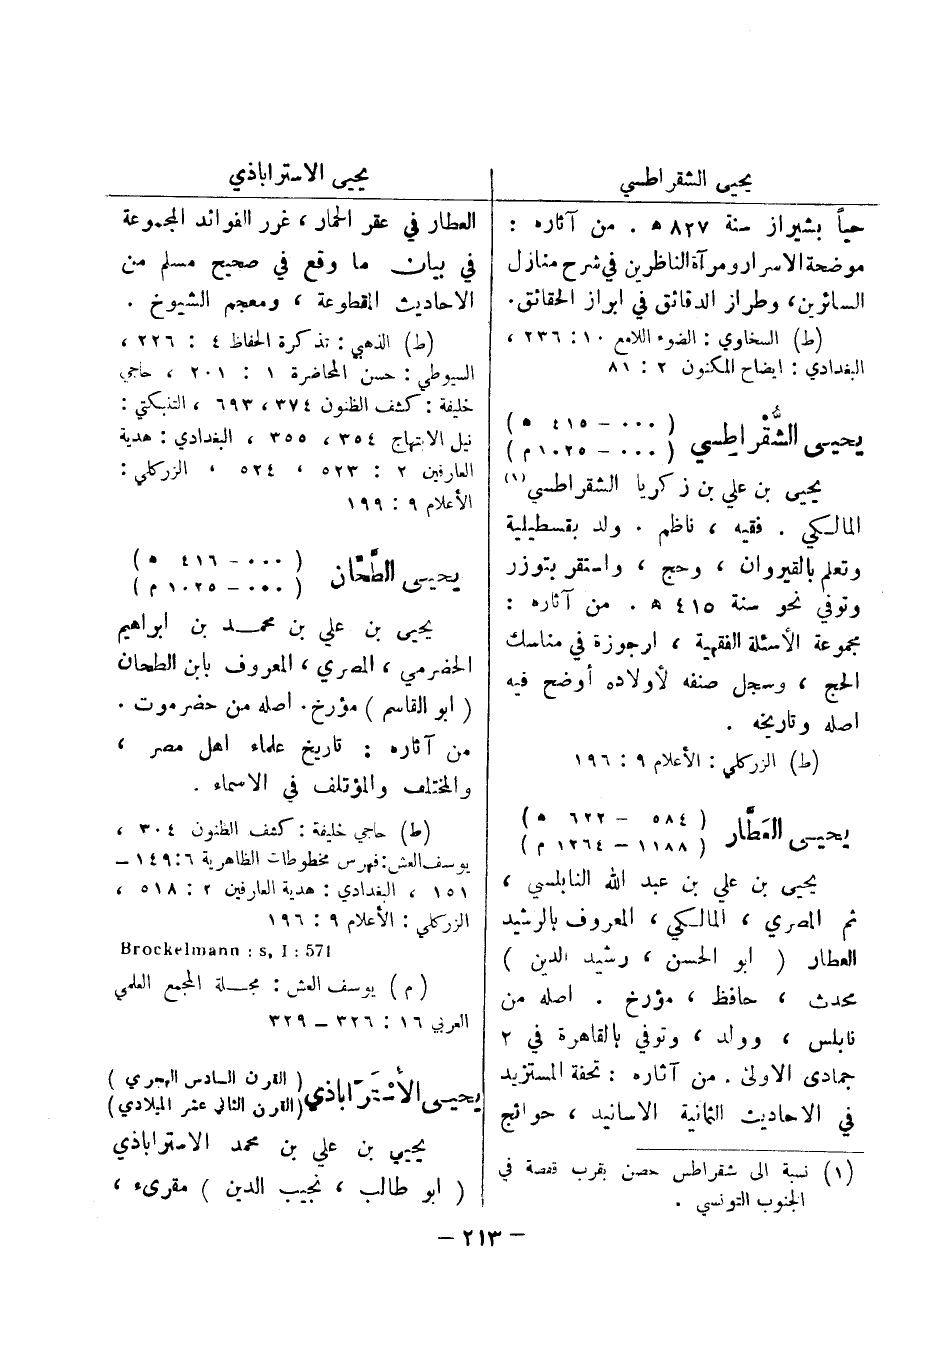 يحيى الشقراطسي
حياً بشيراز سنة ٨٢٧ هـ . من آثاره :
موضحة الاسرار ومرآة الناظرين في شرح منازل
السائرين، وطراز الدقائق في ابراز الحقائق.
(ط) السخاوي : الضوء اللامع ١٠ : ٢٣٦ ،
البغدادي : ايضاح المكنون ٢ : ٨١
يحيى الشُّقْراطِسي ( ٠٠٠ – ٤١٥ هـ )
( ٠٠٠ – ١٠٢٥ م )
يحيى بن علي بن زكريا الشقراطسي (١)
المالكي . فقيه ، ناظم . ولد بقسطيلية
وتعلم بالقيروان ، وحج ، واستقر بتوزر
وتوفي نحو سنة ٤١٥ هـ . من آثاره :
مجموعة الأسئلة الفقهية ، ارجوزة في مناسك
الحج ، وسجل صنفه لأولاده أوضح فيه
اصله وتاريخه .
(ط) الزركلي : الأعلام ٩ : ١٩٦
يحيى العَطَّار ( ٥٨٤ – ٦٢٢ هـ )
( ١١٨٨ – ١٢٦٤ م )
يحيى بن علي بن عبد الله النابلسي ،
ثم المصري ، المالكي ، المعروف بالرشيد
العطار ( ابو الحسن ، رشيد الدين )
محدث ، حافظ ، مؤرخ . اصله من
نابلس ، وولد ، وتوفي بالقاهرة في ٢
جمادى الاولى . من آثاره : تحفة المستزيد
في الاحاديث الثمانية الاسانيد ، حوائج
(١) نسبة الى شقراطس حصن بقرب قفصة في
الجنوب التونسي .
يحيى الاستراباذي
العطار في عقر الحمار ، غرر الفوائد المجموعة
في بيان ما وقع في صحيح مسلم من
الاحاديث المقطوعة ، ومعجم الشيوخ .
(ط) الذهبي : تذكرة الحفاظ ٤ : ٢٢٦ ،
السيوطي : حسن المحاضرة ١ : ٢٠١ ، حاجي
خليفة : كشف الظنون ٣٧٤ ، ٦٩٣ ، التنبكتي :
نيل الابتهاج ٣٥٤ ، ٣٥٥ ، البغدادي : هدية
العارفين ٢ : ٥٢٣ ، ٥٢٤ ، الزركلي :
الأعلام ٩ : ١٩٩
يحيى الطَّحَّان ( ٠٠٠ – ٤١٦ هـ )
( ٠٠٠ – ١٠٢٥ م )
يحيى بن علي بن محمد بن ابراهيم
الحضرمي ، المصري ، المعروف بابن الطحان
( ابو القاسم ) مؤرخ. اصله من حضرموت .
من آثاره : تاريخ علماء اهل مصر ،
والمختلف والمؤتلف في الاسماء .
(ط) حاجي خليفة : كشف الظنون ٣٠٤ ،
يوسف العش : فهرس مخطوطات الظاهرية ٦ : ١٤٩ –
١٥١ ، البغدادي : هدية العارفين ٢ : ٥١٨ ،
الزركلي : الأعلام ٩ : ١٩٦
Brockelmann : s, I : 571
( م ) يوسف العش : مجلة المجمع العلمي
العربي ١٦ : ٣٢٦ – ٣٢٩
يحيى الأَسْتَراباذي ( القرن السادس الهجري )
( القرن الثاني عشر الميلادي )
يحيي بن علي بن محمد الاستراباذي
( ابو طالب ، نجيب الدين ) مقرىء ،
– ٢١٣ –